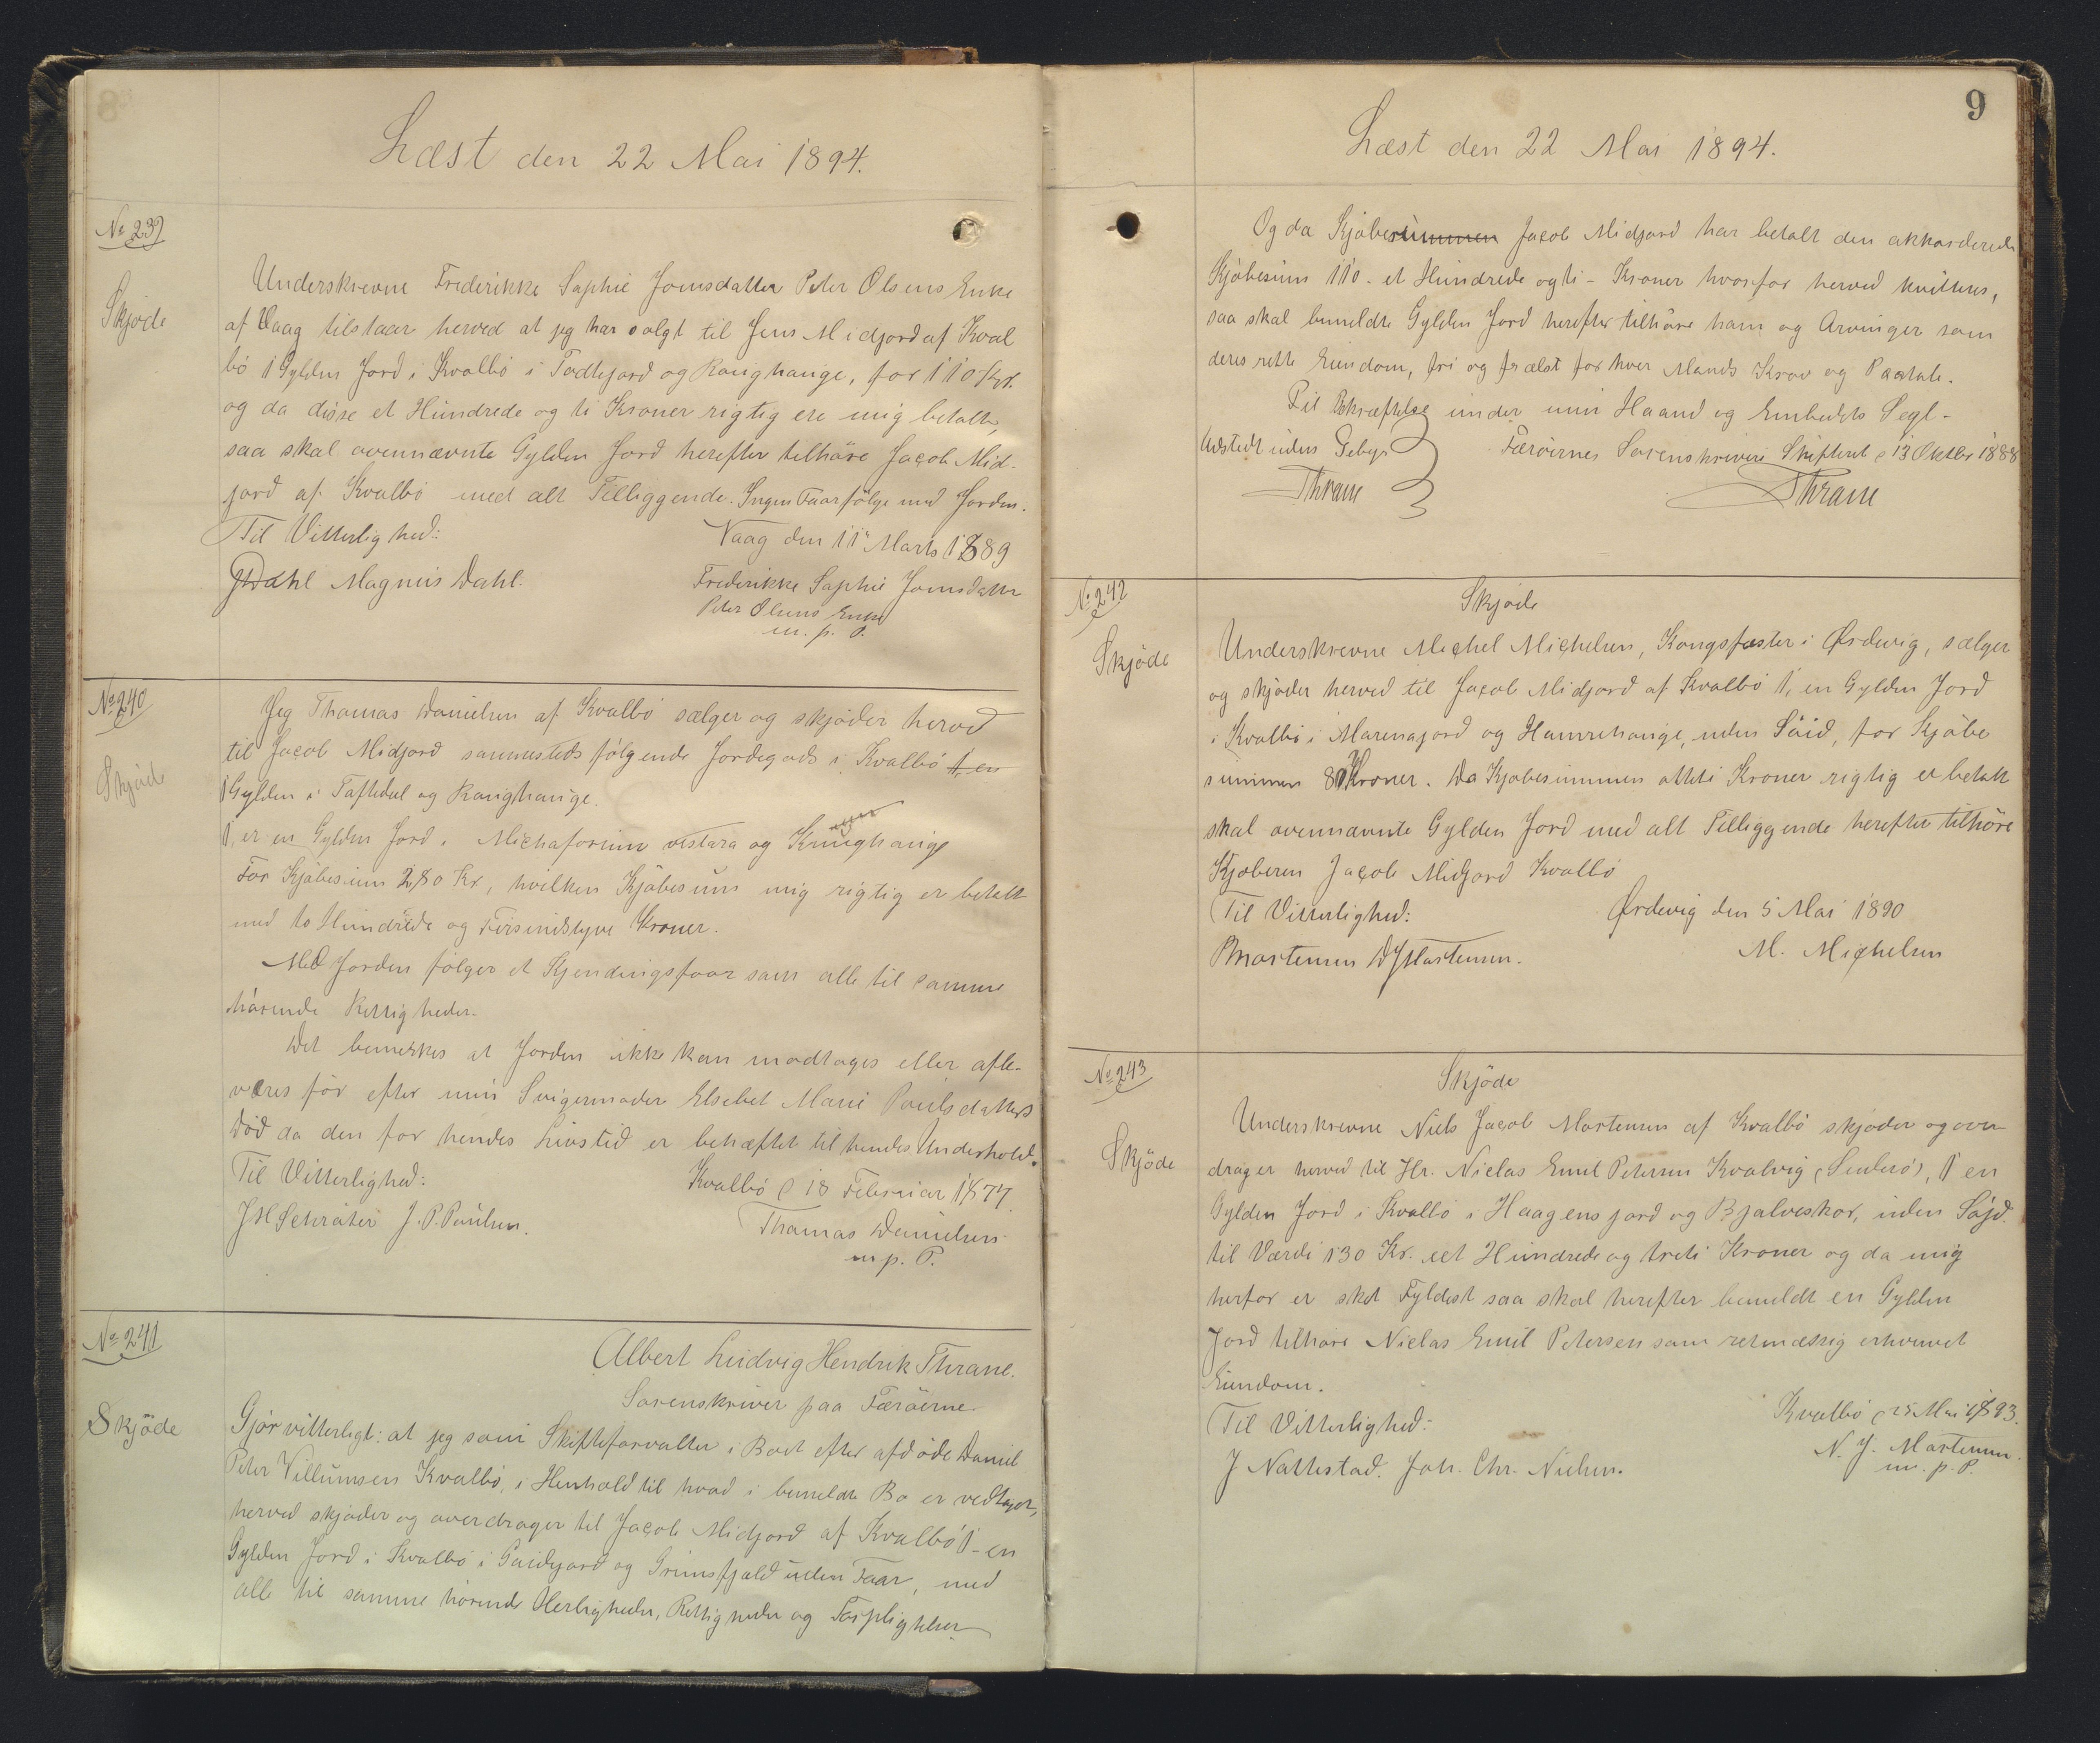 8
Læst den 22 Mai 1894.
No 239
Skjøde
Underskrevne Frederikke Sophie Joensdatter Peter Olsens Enke
af Vaag tilstaar herved at jeg har solgt til Jens Midjord af Kval
bö 1 Gylden Jord i Kvalbö i Todtejord og Ranghauge, for 110 Kr.
og da disse et Hundrede og ti Kroner rigtig ere mig betalte,
saa skal ovennævnte Gylden Jord herefter tilhöre Jacob Mid-
jord af Kvalbö med alt Tilliggende. Ingen Faar følge med Jorden.
Til Vitterlighed: Vaag den 11' Marts 1889
JDahl Magnus Dahl. Frederikke Sophie Joensdatter
Peter Olsens Enke
m. p. P.
No 240
Skjöde
Jeg Thomas Danielsen af Kvalbö sælger og skjöder herved
til Jacob Midjord sammesteds fölgende Jordegods i Kvalbö 1, en
1 Gylden i Toftedal og Ranghauge.
1, er en Gylden Jord i vestara og
For Kjöbesum 280 Kr, hvilken Kjöbesum mig rigtig er betalt
med to Hundrede og Firsindstyve Kroner.
Med Jorden fölger et Kjendingsfaar som alle til samme
hörende Rettigheder.
Det bemerkes at Jorden ikke kan modtages eller afle-
veres för efter min Svigermoder Elsebet Marie Poulsdatters
Död da den for hendes Livstid er behæftet til hendes Underhold.
Til Vitterlighed: Kvalbö d 18 Februar 1877.
JH Schröter J. P. Poulsen. Thomas Danielsen
m. p. P.
No 241
Skjöde
Albert Ludvig Hendrik Thrane.
Sorenskriver paa Færöerne
Gjör vitterligt: at jeg som Skifteforvalter i Boet efter afdöde Daniel
Peter Villumsen Kvalbö, i Henhold til hvad i bemeldte Bo er vedtaget,
herved skjöder og overdrager til Jacob Midjord af Kvalbö 1 - en
Gylden Jord i Kvalbö i og Grimsfjald uden Faar, med
alle til samme hörende Herligheder, Rettigheder og Forpligtelser
9
Læst den 22 Mai 1894.
Og da Kjöbesummen Jacob Midjord har betalt den akkorderede
Kjöbesum 110 - et Hundrede og ti - Kroner hvorfor herved kvitteres,
saa skal bemeldte Gylden Jord herefter tilhöre ham og Arvinger som
deres rette Eiendom, fri og frælst for hver Mands Krav og Paatale.
Til Bekræftelse under min Haand og Embeds Segl -
Udstedt uden Gebyr Færöernes Sorenskriveri Skifteret d 13 Oktbr 1888
Thrane Thrane
No 242
Skjöde
Skjöde
Underskrevne Michel Michelsen, Kongsfæster i Ørdevig, sælger
og skjöder herved til Jacob Midjord af Kvalbö 1, en Gylden Jord
i Kvalbö i Marenajord og Hamrehauge, uden Söid, for Kjöbe
summen 80 Kroner. Da Kjöbesummen otteti Kroner rigtig er betalt
skal ovennævnte Gylden Jord med alt Tilliggende herefter tilhöre
Kjöberen Jacob Midjord Kvalbö
Til Vitterlighed: Ørdevig den 5 Mai 1890
PMortensen DJMortensen. M. Michelsen
No 243
Skjöde
Skjöde
Underskrevne Niels Jacob Mortensen af Kvalbö skjöder og over
drager herved til Hr. Nielas Emil Petersen Kvalvig (Suderö), 1 en
Gylden Jord i Kvalbö i Haagensjord og Bjalveskor, uden Söjd.
til Værdi 130 Kr. eet Hundrede og treti Kroner og da mig
herfor er sket Fyldest saa skal herefter bemeldt en Gylden
Jord tilhöre Nielas Emil Petersen som retmæssig erhvervet
Eiendom.
Til Vitterlighed: Kvalbö d 25 Mai 1893.
J Nattestad. Joh. Chr. Nielsen. N. J. Mortensen.
m. p. P.